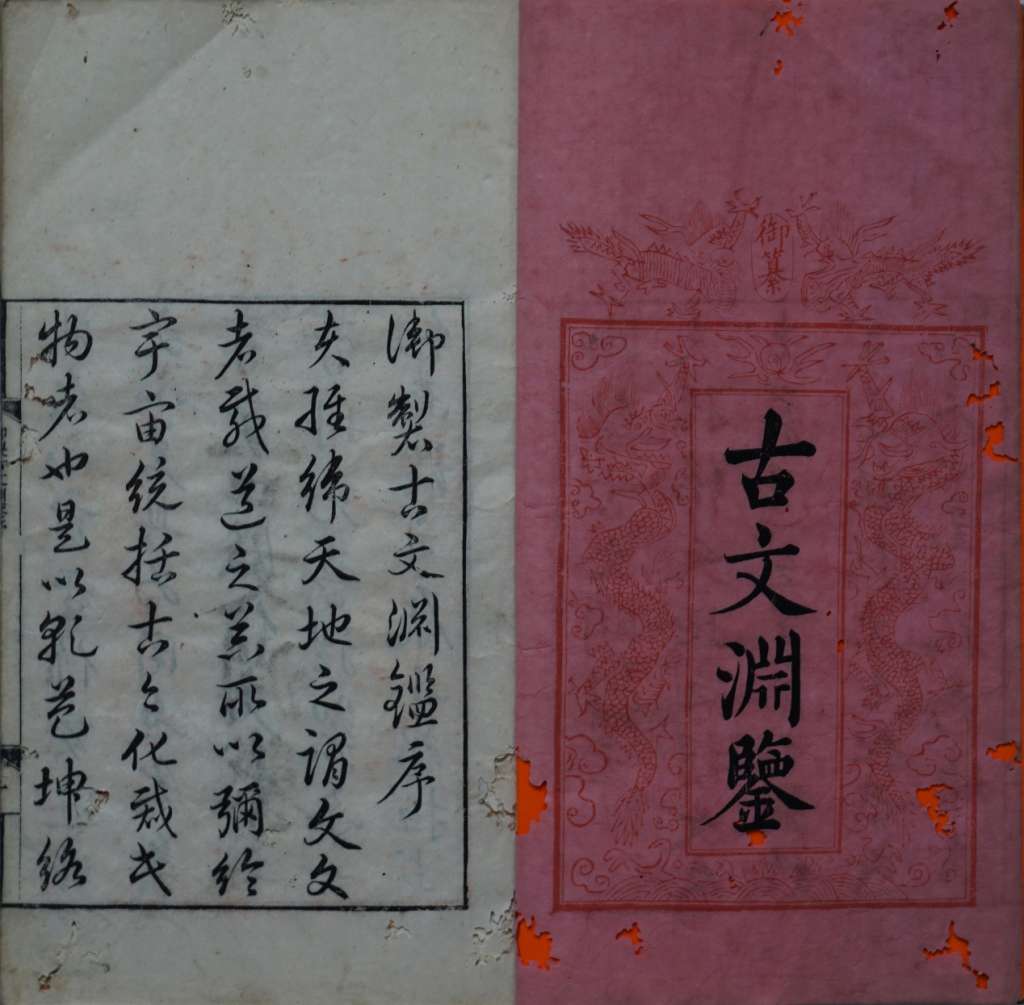 御纂
古文淵鑒
御製古文淵鑑序
夫經緯天地之謂文文
者載道之器所以彌綸
宇宙統括古今化裁民
物者也是以乾苞坤絡